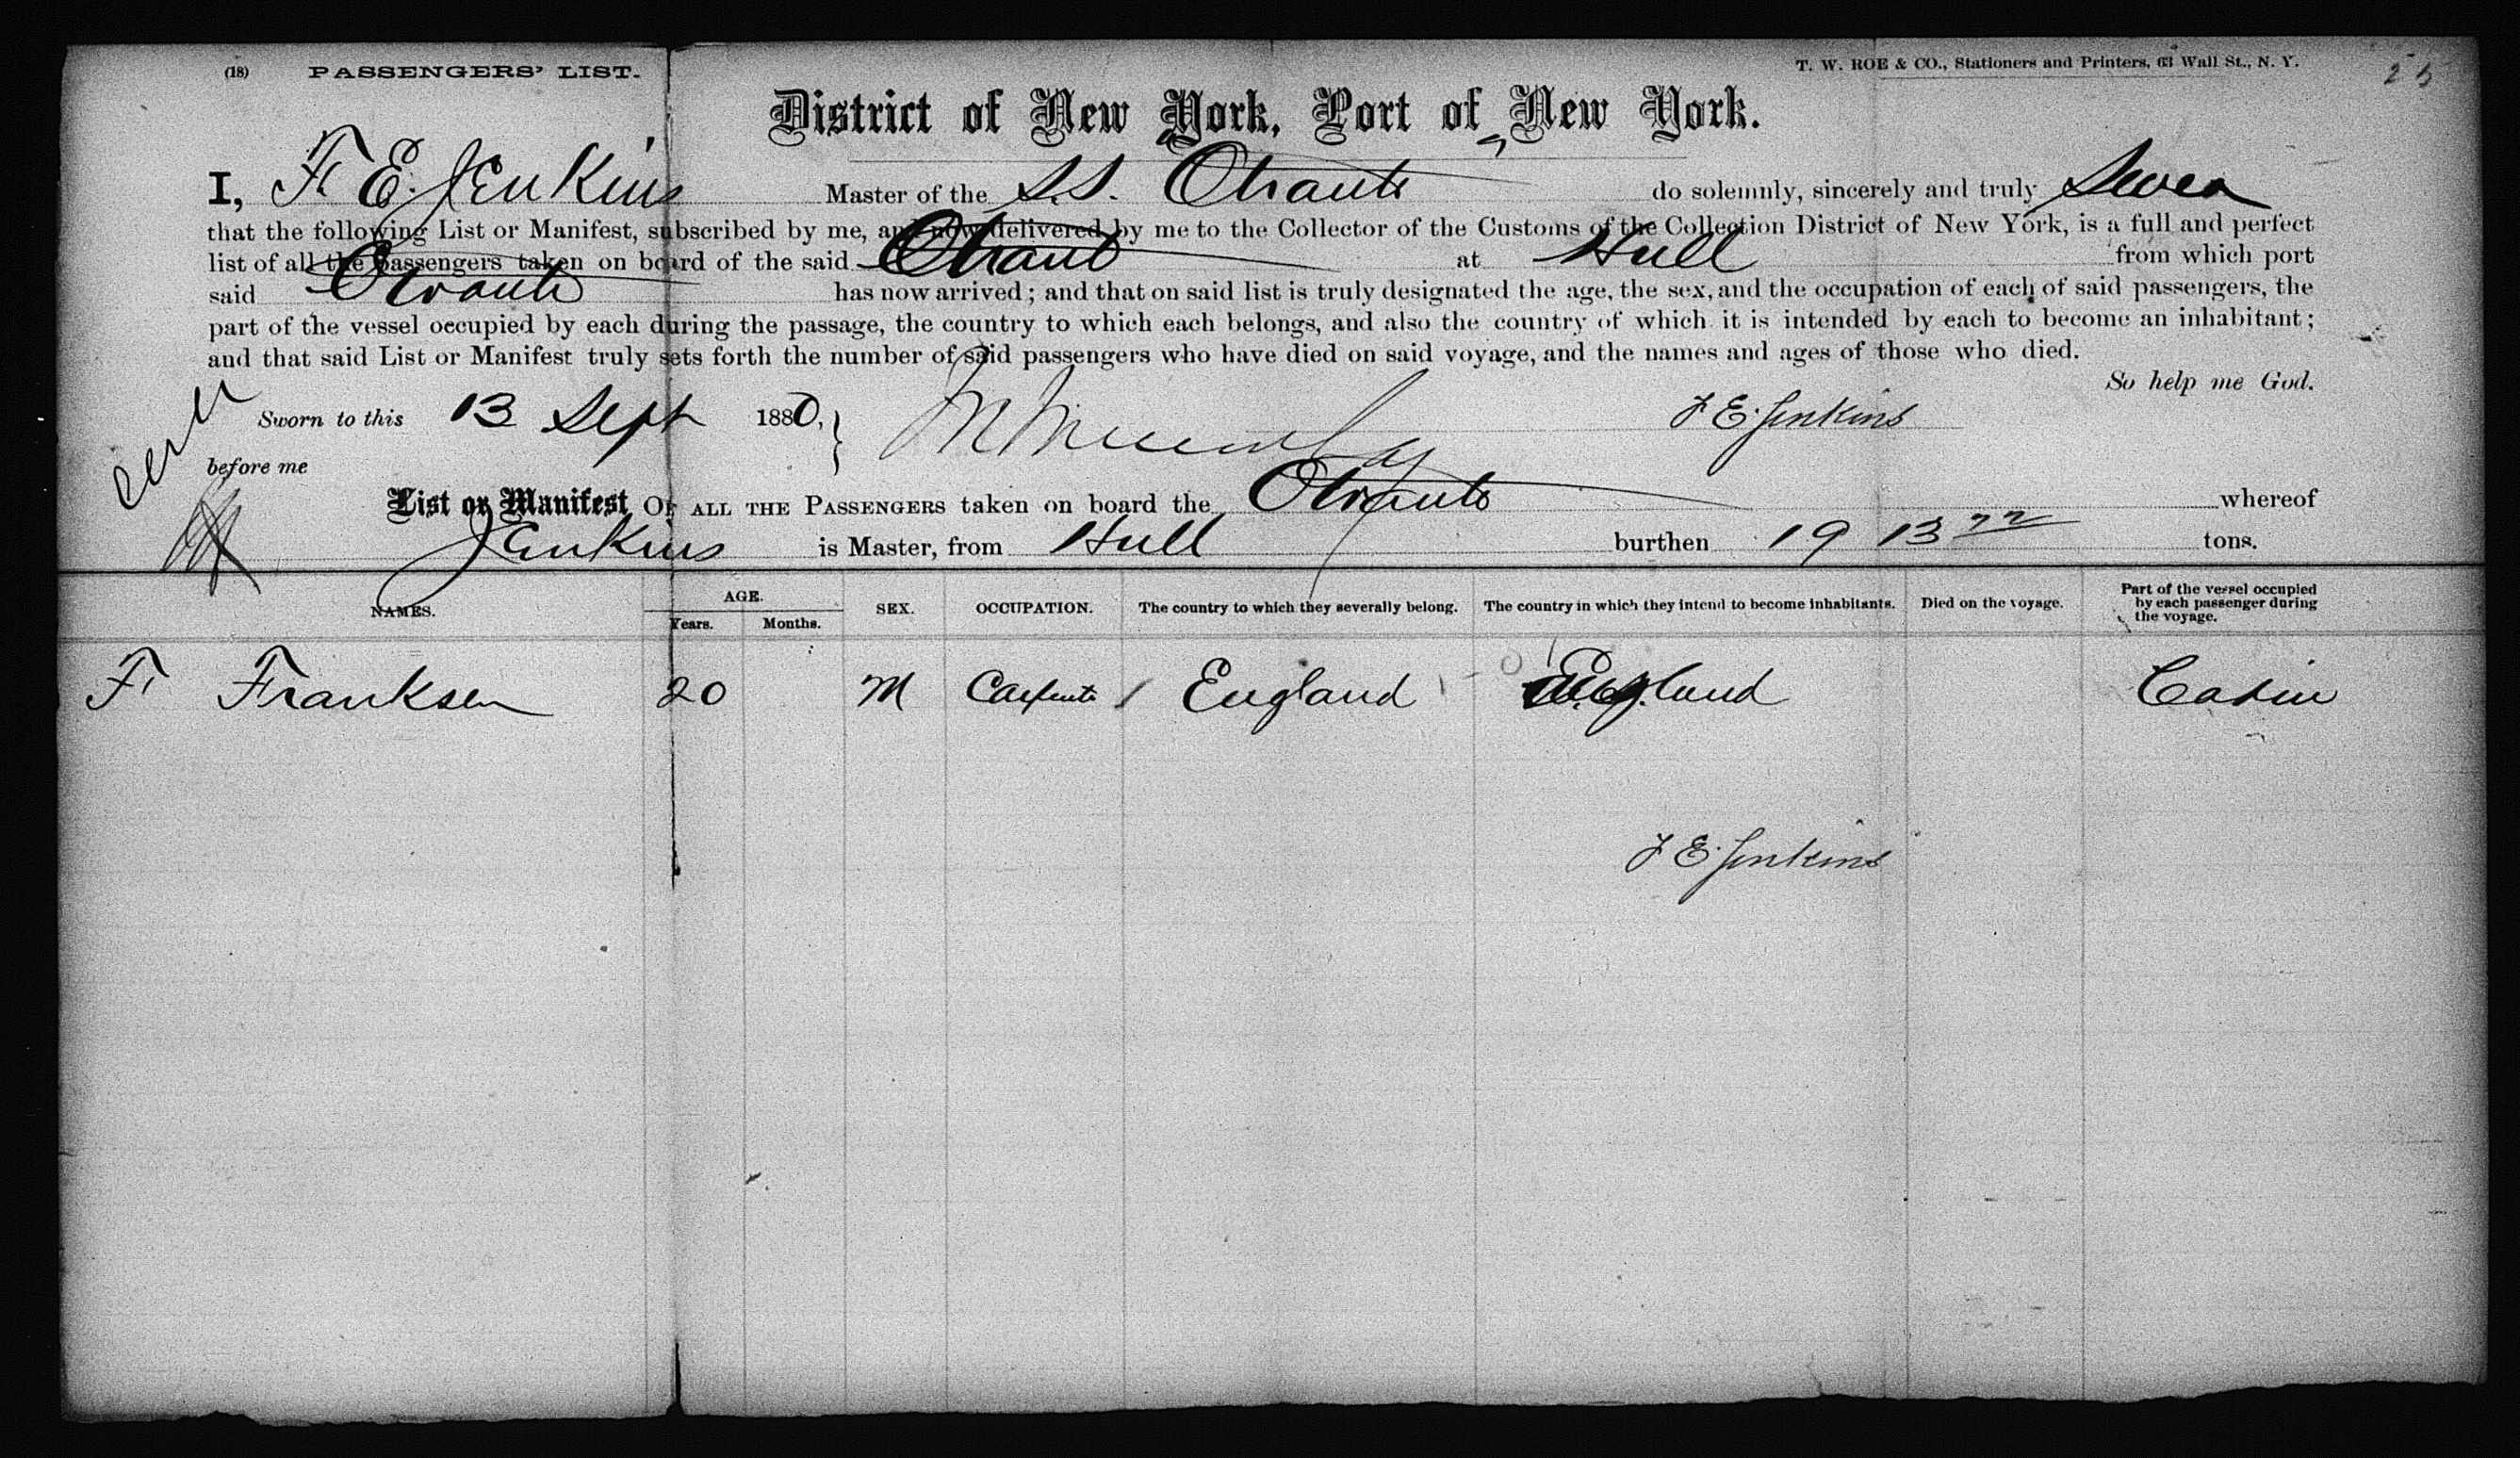 (18) PASSENGERS' LIST.
T. W. ROE & CO., Stationers and Printers, 63 Wall St., N. Y.
25
District of New York, Port of New York.
I, F. E. Jenkins Master of the S.S. Otranto do solemnly, sincerely and truly Swear
that the following List or Manifest, subscribed by me, and now delivered by me to the Collector of the Customs of the Collection District of New York, is a full and perfect
list of all the passengers taken on board of the said Otranto at Hull from which port
said Otranto has now arrived; and that on said list is truly designated the age, the sex, and the occupation of each of said passengers, the
part of the vessel occupied by each during the passage, the country to which each belongs, and also the country of which it is intended by each to become an inhabitant;
and that said List or Manifest truly sets forth the number of said passengers who have died on said voyage, and the names and ages of those who died.
So help me God.
Sworn to this 13 Sept 1880, F E Jenkins
before me
List or Manifest OF ALL THE PASSENGERS taken on board the Otranto whereof
Jenkins is Master, from Hull burthen 1913 tons.
NAMES. AGE. Years. Months. SEX. OCCUPATION. The country to which they severally belong. The country in which they intend to become inhabitants. Died on the voyage. Part of the vessel occupied by each passenger during the voyage.
F. Franksen 20 M Carpenter England England Cabin
F E Jenkins